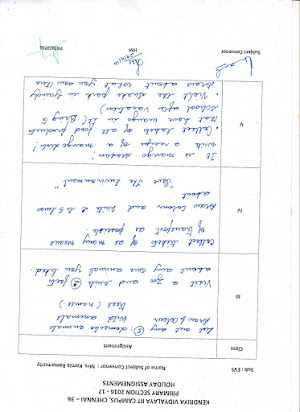 KENDRIYA VIDYALAYA IIT CAMPUS, CHENNAI - 36
PRIMARY SECTION 2016 - 17
HOLIDAY ASSIGNEMENTS
Sub : EVS
Name of Subject Convenor : Mrs. Kamla Ramamurthy
Class
Assignment
III
List out any 5 domestic animals
Draw & colour wild animals
trees (names).
Visit a zoo and write 5 facts
about any one animal you liked.
IV
Collect labels of as many means
of transport as possible.
Draw colour and write 5 to 6 lines
about
"Save the Environment"
V
It is mango season!
with a recipe of a mango dish!
• Collect labels of all food products
that have mango in it (Bring to
school after vacation)
• Visit the park nearby
Draw about what you saw there
Subject Convenor
HM
PRINCIPAL